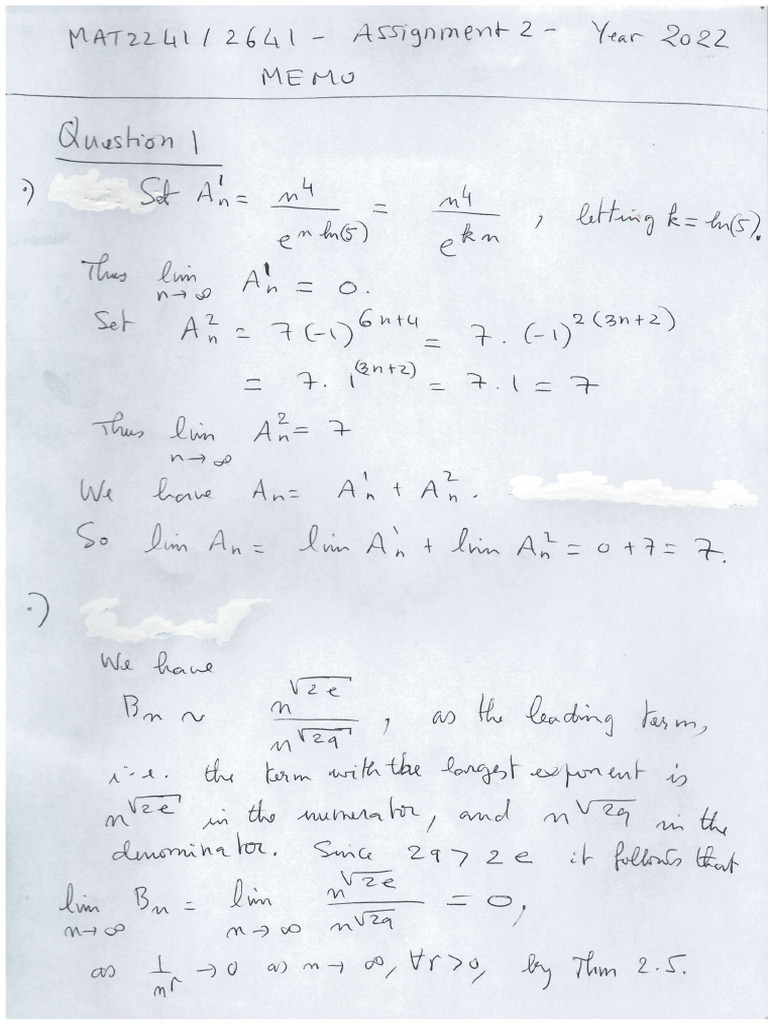 MAT2241/2641 - Assignment 2 - Year 2022
MEMO
Question 1
·) Set A¹ₙ = n⁴/e^(n ln(5)) = n⁴/e^(kn), letting k = ln(5).
Thus lim n→∞ A¹ₙ = 0.
Set A²ₙ = 7(-1)^(6n+4) = 7·(-1)^(2(3n+2))
= 7·1^(3n+2) = 7·1 = 7
Thus lim n→∞ A²ₙ = 7
We have Aₙ = A¹ₙ + A²ₙ.
So lim Aₙ = lim A¹ₙ + lim A²ₙ = 0 + 7 = 7.
·)
We have
Bₙ ~ n^√(2e)/n^√(29), as the leading term,
i.e. the term with the largest exponent is
n^√(2e) in the numerator, and n^√(29) in the
denominator. Since 29 > 2e it follows that
lim n→∞ Bₙ = lim n→∞ n^√(2e)/n^√(29) = 0,
as 1/nʳ → 0 as n→∞, ∀r>0, by Thm 2.5.